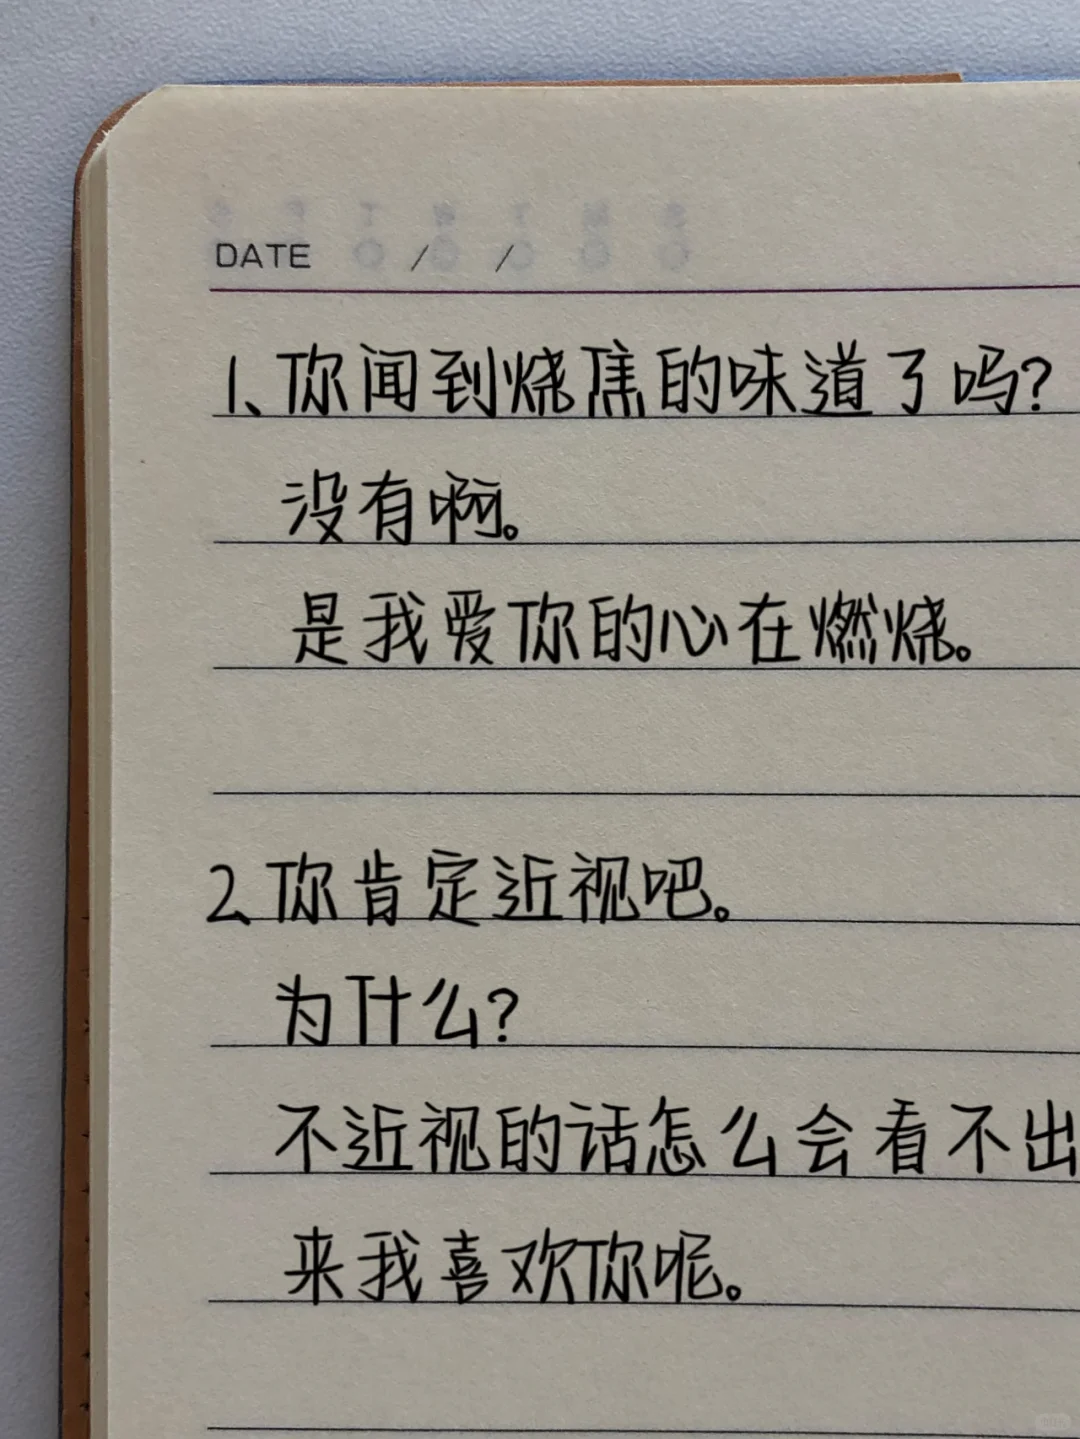 DATE / /
1、你闻到烧焦的味道了吗?
没有啊。
是我爱你的心在燃烧。
2、你肯定近视吧。
为什么?
不近视的话怎么会看不出
来我喜欢你呢。